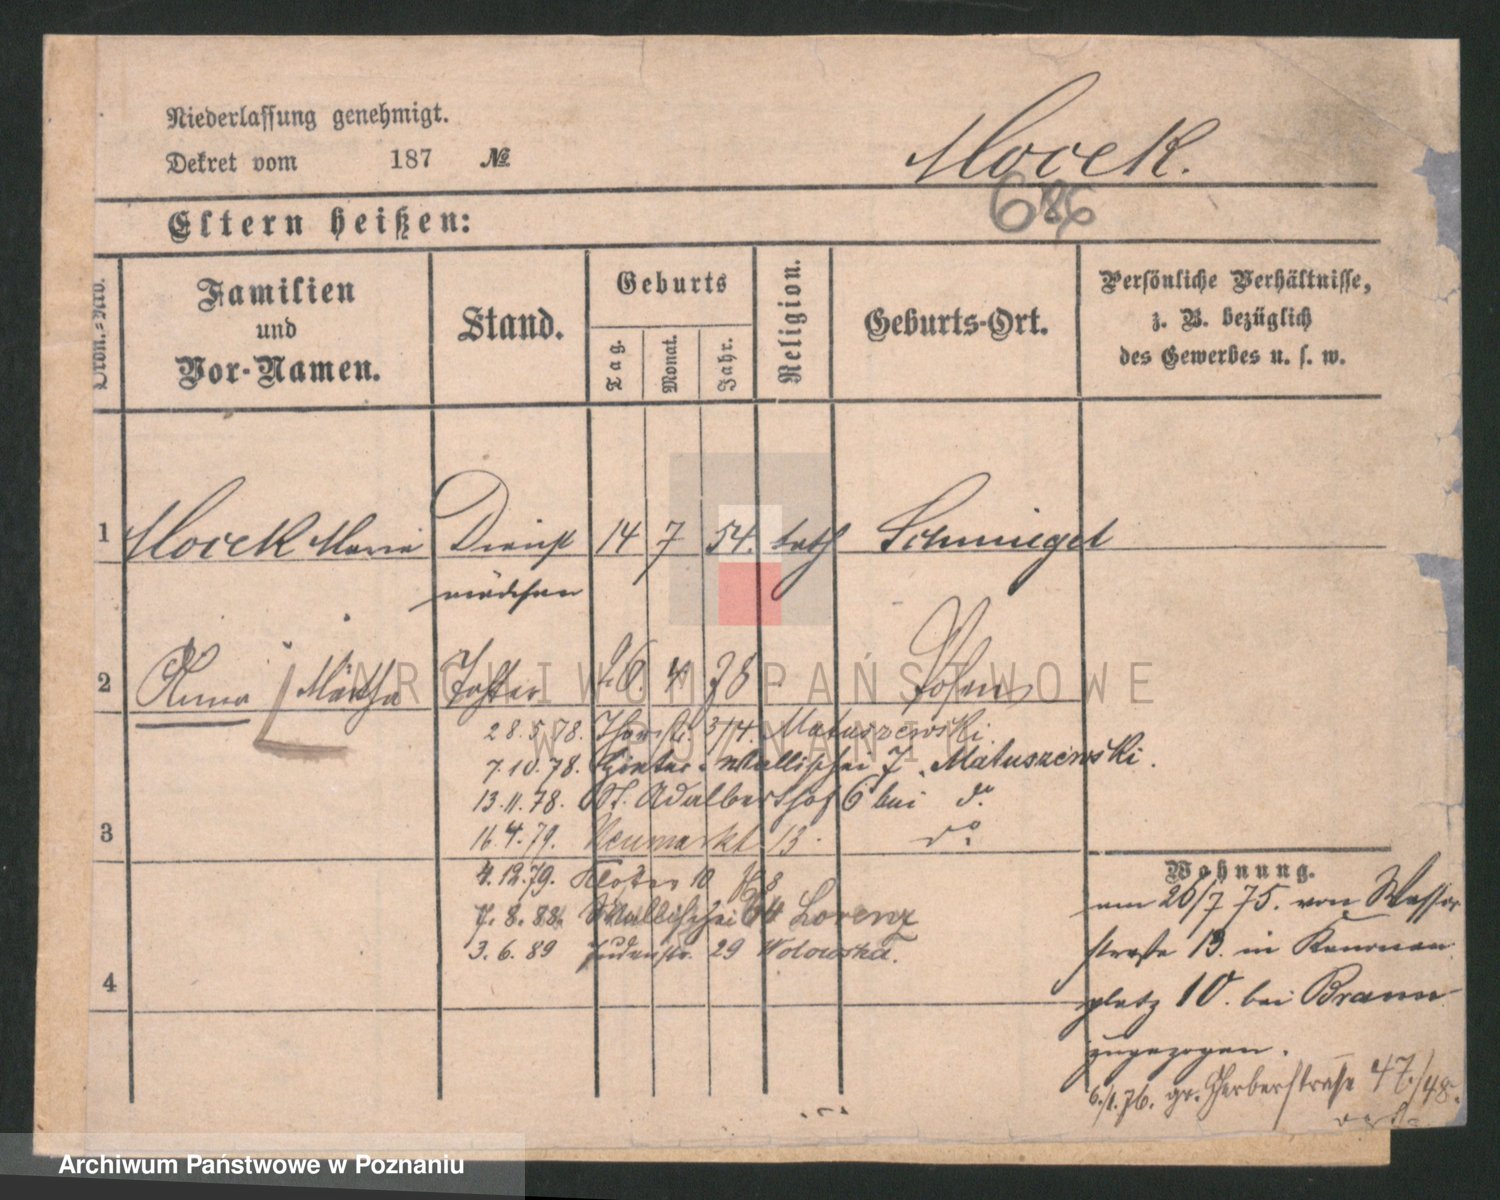 Niederlassung genehmigt.
Dekret vom 187 №
Mocek.
686
Eltern heißen:
Ordn.-Nro.
Familien und Vor-Namen.
Stand.
Geburts
Tag.
Monat.
Jahr.
Religion.
Geburts-Ort.
Persönliche Verhältnisse,
z. B. bezüglich
des Gewerbes u. s. w.
1 Mocek Marie Dienst 14 7 54. kath Schmiegel
mädchen
2 Anna Martha Tochter 26. 4 78 Posen
ARCHIWUM PAŃSTWOWE
W POZNANIU
28.5.78. 3/4. Matuszewski.
7.10.78. Hinter-Wallischei 7. Matuszewski.
13.11.78. St. Adalberthof 6 bei do.
3 16.4.79. Neumarkt 13. do.
4.12.79. 10
7.8.88. Wallischei Lorenz
3.6.89 Judenstr. 29 Wolowska.
4
Wohnung.
am 26/7 75. von Wasser
straße 13. in Kanonen
platz 10. bei Braun
zugezogen.
6./1.76. gr. Gerberstraße 47./48.
Archiwum Państwowe w Poznaniu